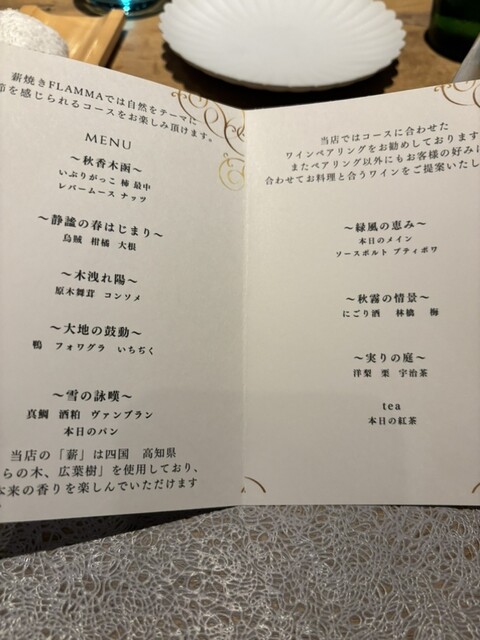 薪焼きFLAMMAでは自然をテーマに
節を感じられるコースをお楽しみ頂けます。
MENU
～秋香木函～
いぶりがっこ 柿 最中
レバームース ナッツ
～静謐の春はじまり～
烏賊 柑橘 大根
～木洩れ陽～
原木舞茸 コンソメ
～大地の鼓動～
鴨 フォワグラ いちぢく
～雪の詠嘆～
真鯛 酒粕 ヴァンブラン
本日のパン
当店の「薪」は四国 高知県
らの木、広葉樹」を使用しており、
本来の香りを楽しんでいただけます
当店ではコースに合わせた
ワインペアリングをお勧めしております
またペアリング以外にもお客様の好みに
合わせてお料理と合うワインをご提案いたし
～緑風の恵み～
本日のメイン
ソースポルト プティポワ
～秋霧の情景～
にごり酒 林檎 梅
～実りの庭～
洋梨 栗 宇治茶
tea
本日の紅茶